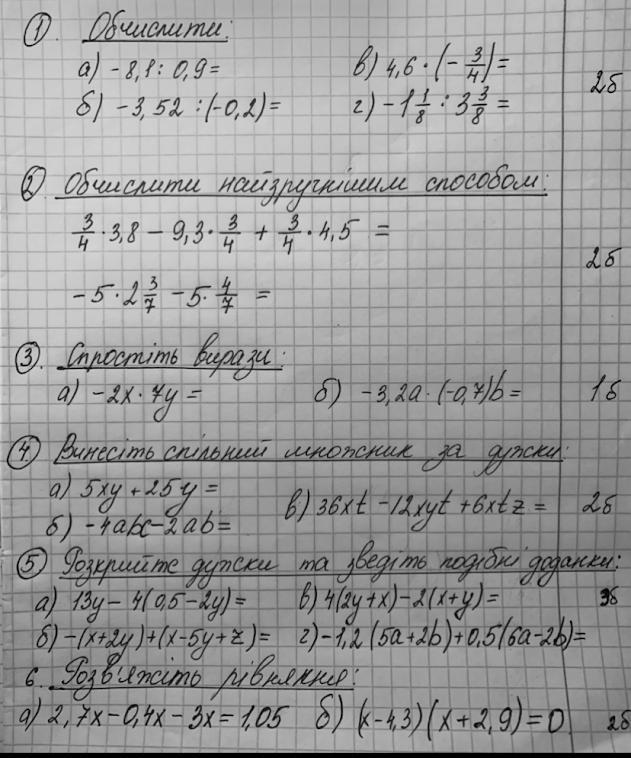 1. Обчислити:
а) -8,1 : 0,9 = в) 4,6 · (- 3/4) =
б) -3,52 : (-0,2) = г) -1 1/8 : 3 3/8 = 2б
2. Обчислити найзручнішим способом:
3/4 · 3,8 - 9,3 · 3/4 + 3/4 · 4,5 =
2б
-5 · 2 3/7 - 5 · 4/7 =
3. Спростіть вирази:
а) -2x · 7y = б) -3,2a · (-0,7)b = 1б
4. Винесіть спільний множник за дужки:
а) 5xy + 25y = в) 36xt - 12xyt + 6xtz = 2б
б) -4abc - 2ab =
5. Розкрийте дужки та зведіть подібні доданки:
а) 13y - 4(0,5 - 2y) = в) 4(2y + x) - 2(x + y) = 3б
б) -(x + 2y) + (x - 5y + z) = г) -1,2(5a + 2b) + 0,5(6a - 2b) =
6. Розв'яжіть рівняння:
а) 2,7x - 0,4x - 3x = 1,05 б) (x - 4,3)(x + 2,9) = 0 2б